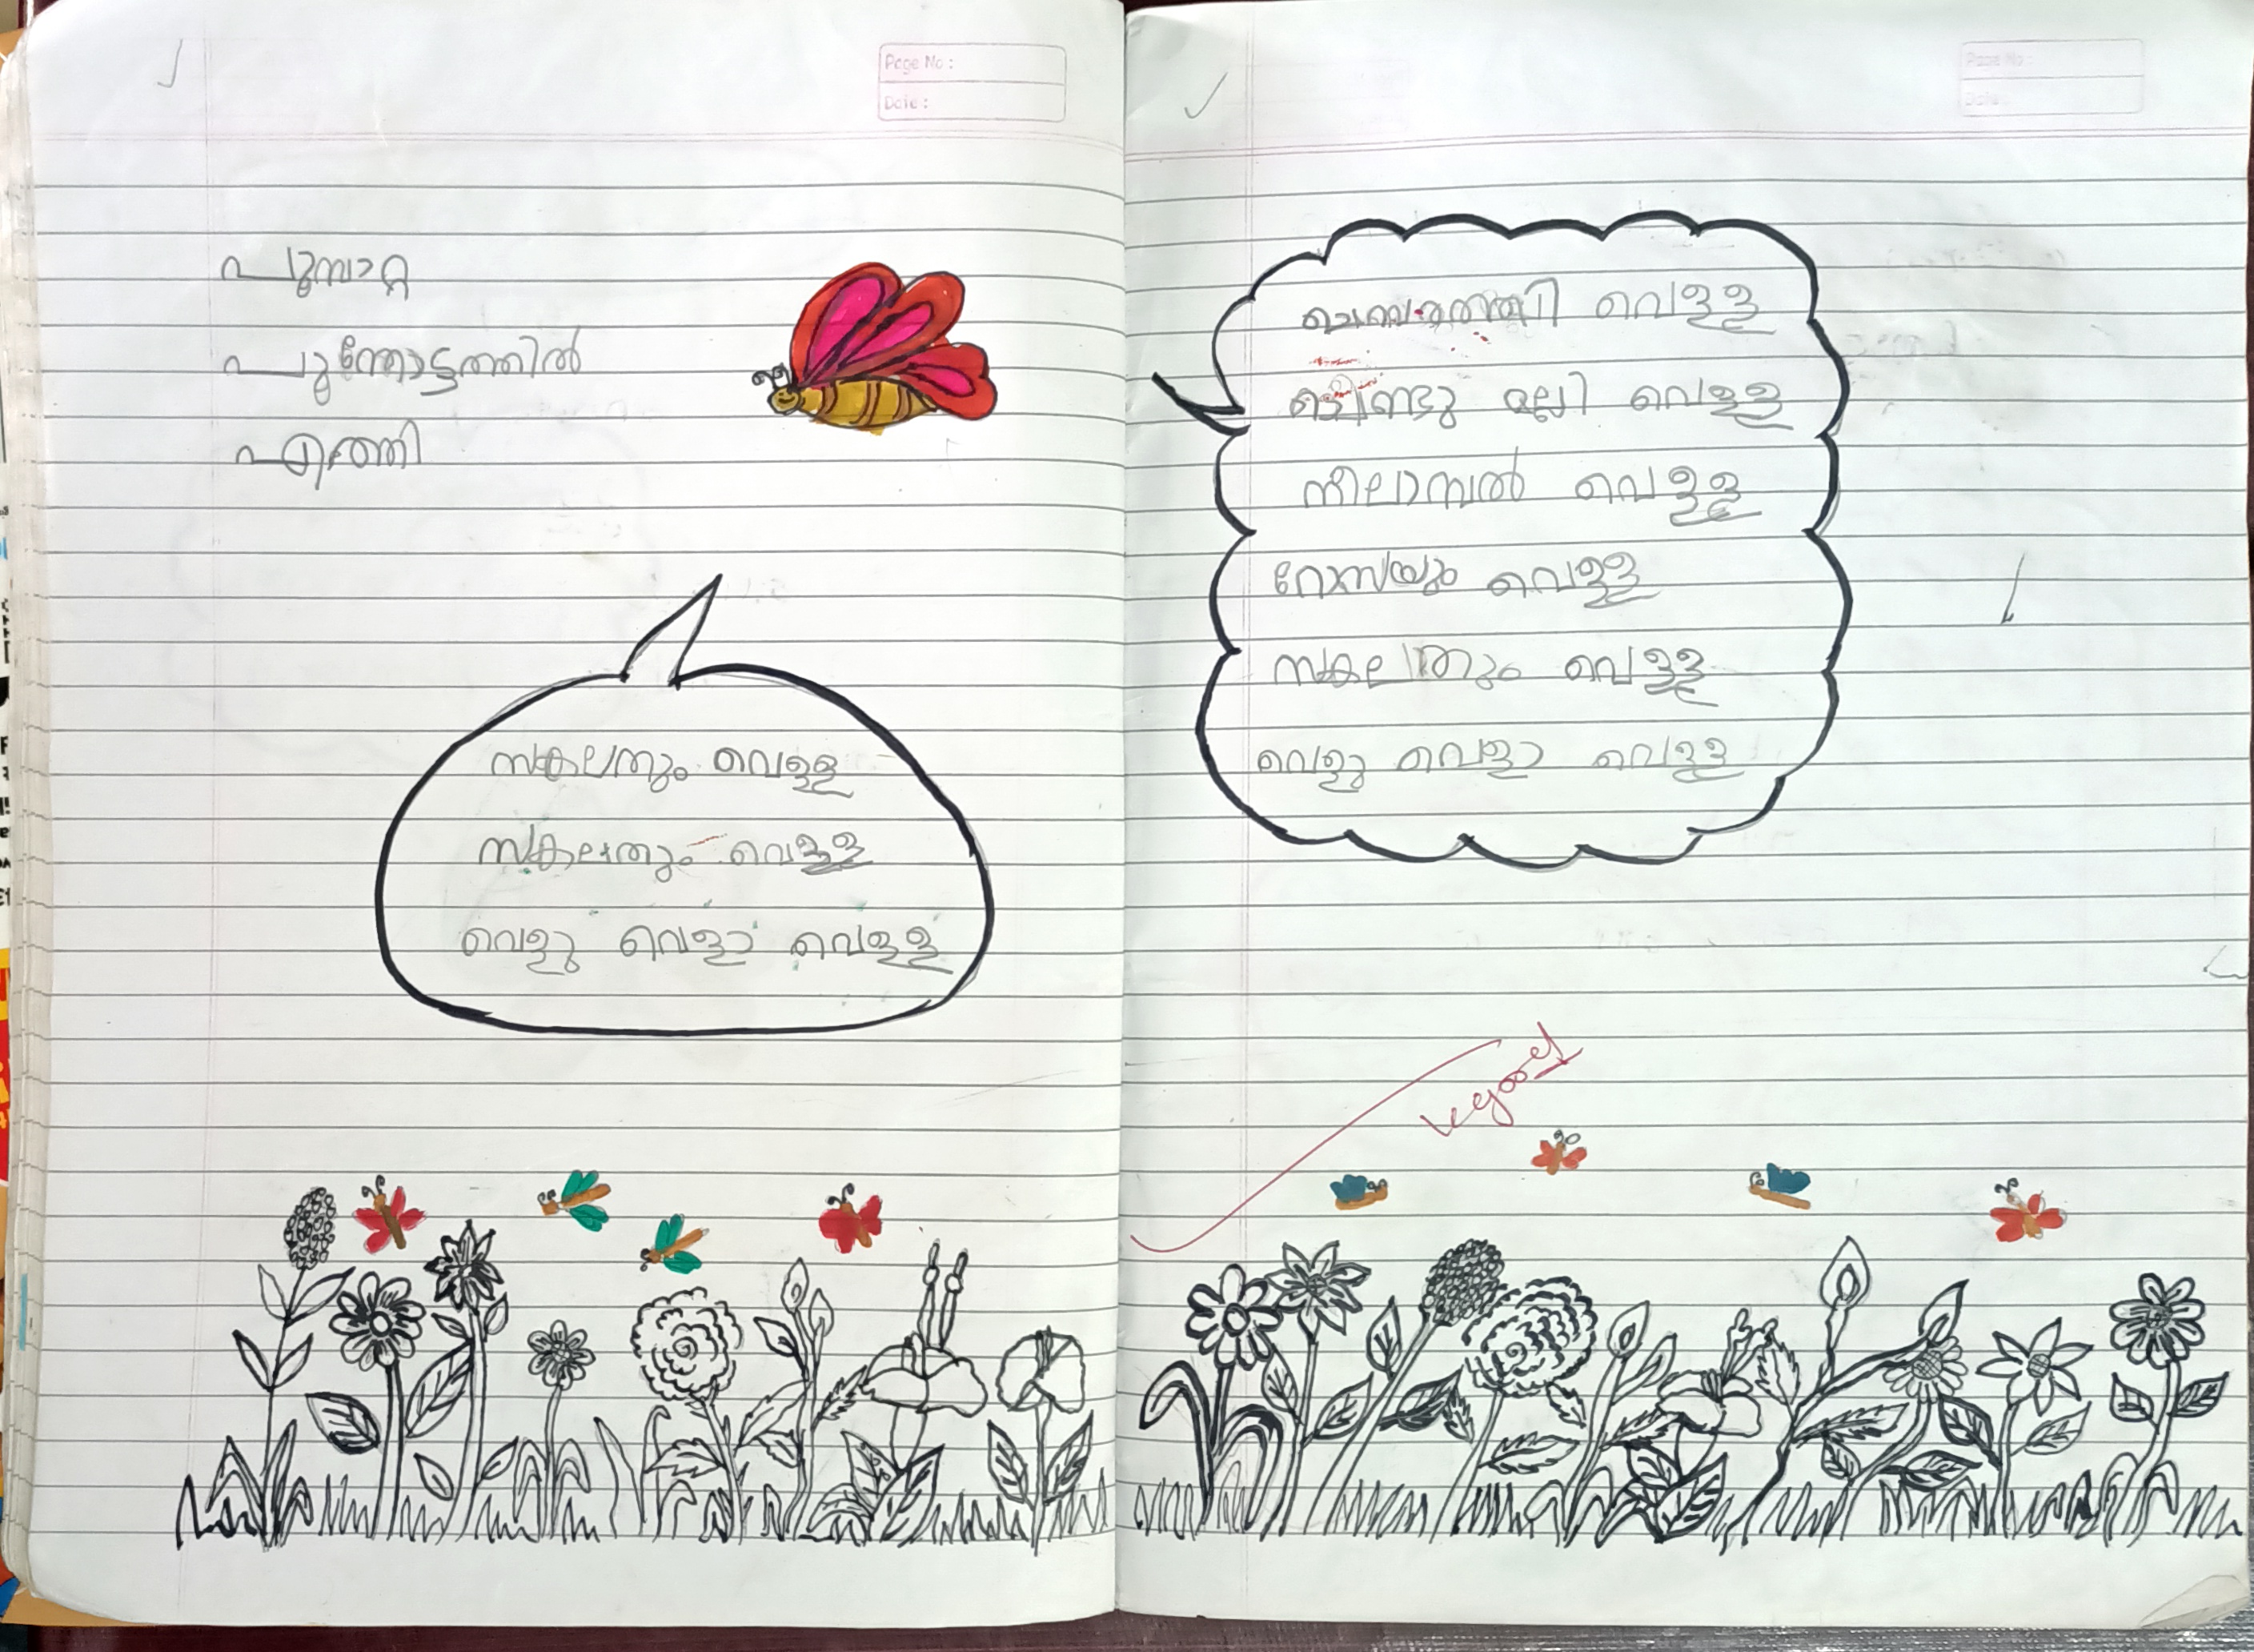 Page No :
Date :
പൂമ്പാറ്റ
പൂന്തോട്ടത്തിൽ
എത്തി
സകലതും വെള്ള
സകലതും വെള്ള
വെളു വെളാ വെള്ള
Page No :
Date :
ചെമ്പരത്തി വെള്ള
ചെണ്ടു മല്ലി വെള്ള
നീലാമ്പൽ വെള്ള
റോസയും വെള്ള
സകലതും വെള്ള
വെളു വെളാ വെള്ള